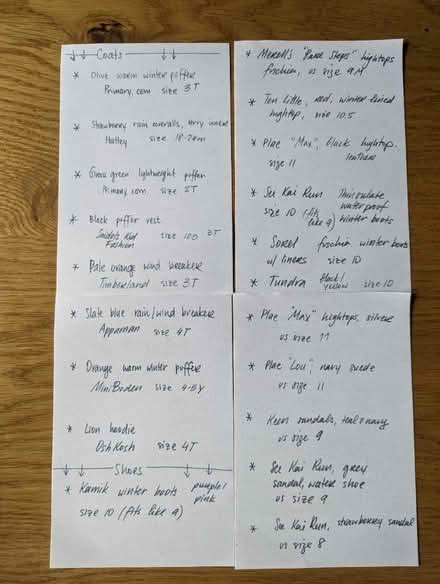 Coats
* Olive warm winter puffer
Primary.com size 3T
* Strawberry rain overalls, terry inside
Hatley size 18-24m
* Grass green lightweight puffer
Primary.com size 2T
* Black puffer vest
Kid Fashion size 100 3T
* Pale orange wind breaker
Timberland size 3T
* Slate blue rain/wind breaker
Appaman size 4T
* Orange warm winter puffer
Mini Boden size 4-5y
* Lion hoodie
OshKosh size 4T
Shoes
* Kamik winter boots purple/
pink
size 10 (fits like 9)
* Merell's "Bare Steps" hightops
fuschia, us size 9M
* Ten Little, red, winter lined
hightop, size 10.5
* Plae "Max", black hightop.
leather
size 11
* See Kai Run Thinsulate
waterproof
size 10 (fits winter boots
like 9)
* Sorel fuschia winter boots
w/ liners size 10
* Tundra black/
yellow size 10
* Plae "Max" hightops, silver
us size 11
* Plae "Lou", navy suede
us size 11
* Keen sandals, teal & navy
us size 9
* See Kai Run, grey
sandal, water shoe
us size 9
* See Kai Run, strawberry sandal
us size 8